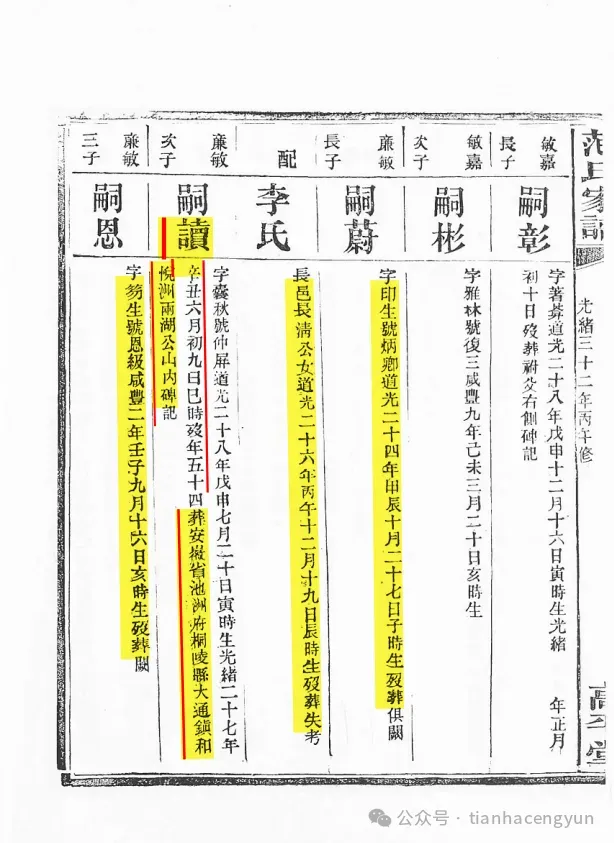 范氏家譜
光緒三十二年丙午修
高平堂
敏嘉
長子
嗣彰
字著莽道光二十八年戊申十二月十六日寅時生光緒 年正月
初十日歿葬祔父右側碑記
敏嘉
次子
嗣彬
字雅林號復三咸豐九年己未三月二十日亥時生
亷敏
長子
嗣蔚
字印生號炳卿道光二十四年甲辰十月二十七日子時生歿葬俱闕
配
李氏
長邑長清公女道光二十六年丙午十二月十九日辰時生歿葬失考
亷敏
次子
嗣讀
字囊秋號仲屏道光二十八年戊申七月二十日寅時生光緒二十七年
辛丑六月初九日巳時歿年五十四葬安徽省池洲府桐陵縣大通鎮和
悅洲兩湖公山內碑記
亷敏
三子
嗣恩
字芴生號恩級咸豐二年壬子九月十六日亥時生歿葬闕
公众号 · tianhacengyun